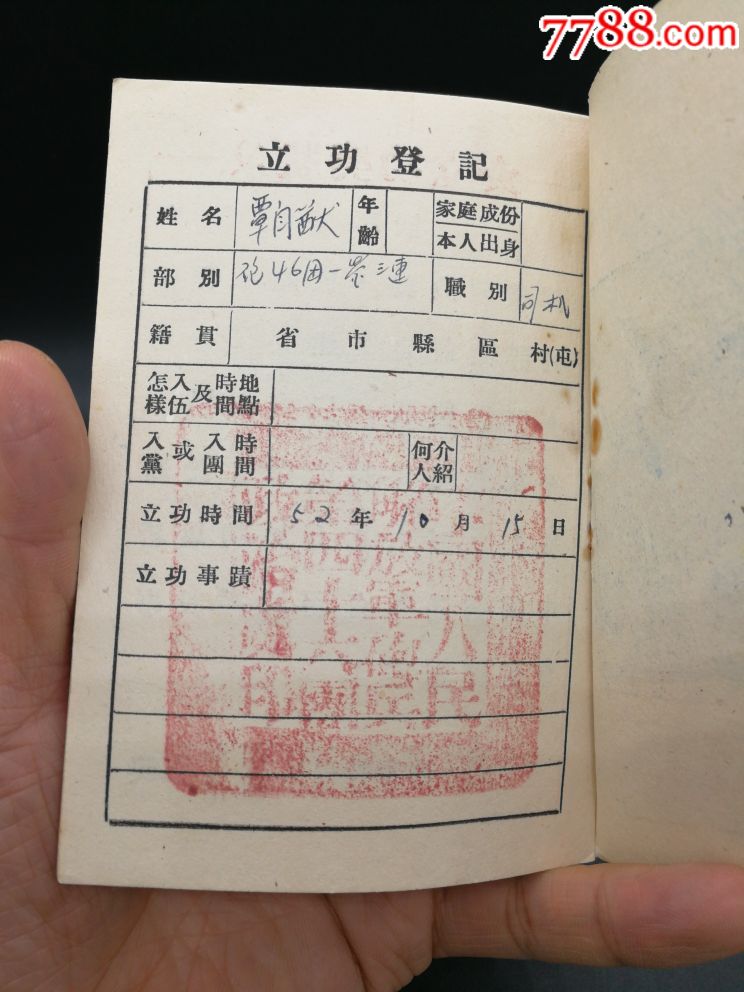 7788.com
立功登記
姓名 覃自猷 年齡 家庭成份 本人出身
部別 砲46团一营三連 職別 司机
籍貫 省 市 縣 區 村(屯)
怎樣入伍及時間地點
入黨或入團時間 何人介紹
立功時間 52年10月15日
立功事蹟